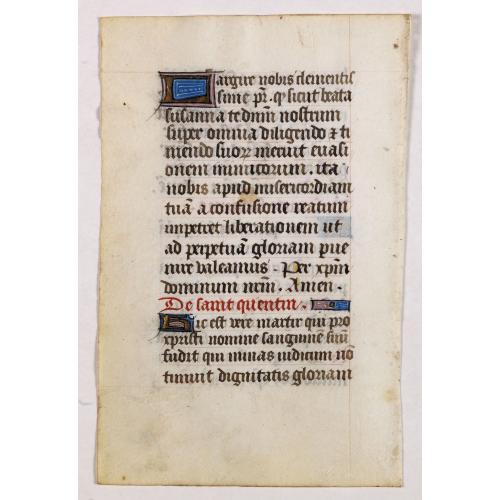 Largire nobis clementis
sime pr̃. qȝ sicut beata
susanna te dnm̃ nostrum
super omnia diligendo ⁊ ti
mendo suoꝝ meruit euasi
onem inimicorum . ita
nobis apud misericordiam
tuã a confusione reatum
impetret liberationem ut
ad perpetuã gloriam pue
nire valeamus . Per xp̃m
dominum nrm̃ . Amen .
De saint quentin .
Hic est vere martir qui pro
xpristi nomine sanguinẽ suũ
fudit qui minas iudicum nõ
timuit dignitatis gloriam